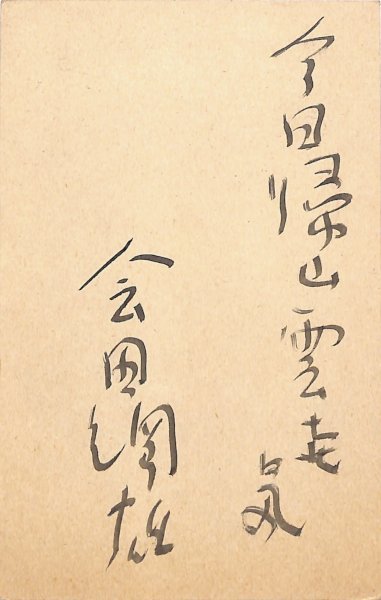 今日帰山雲走
気
会田綱雄